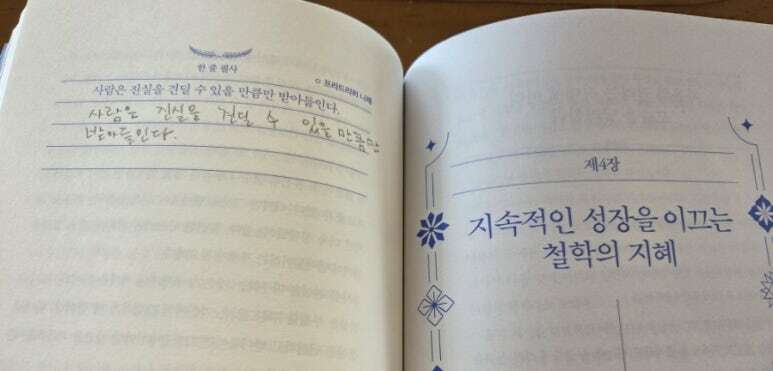 한 줄 필사
사람은 진실을 견딜 수 있을 만큼만 받아들인다.
○ 프리드리히 니체
사람은 진실을 견딜 수 있을 만큼만
받아들인다.
제4장
지속적인 성장을 이끄는
철학의 지혜